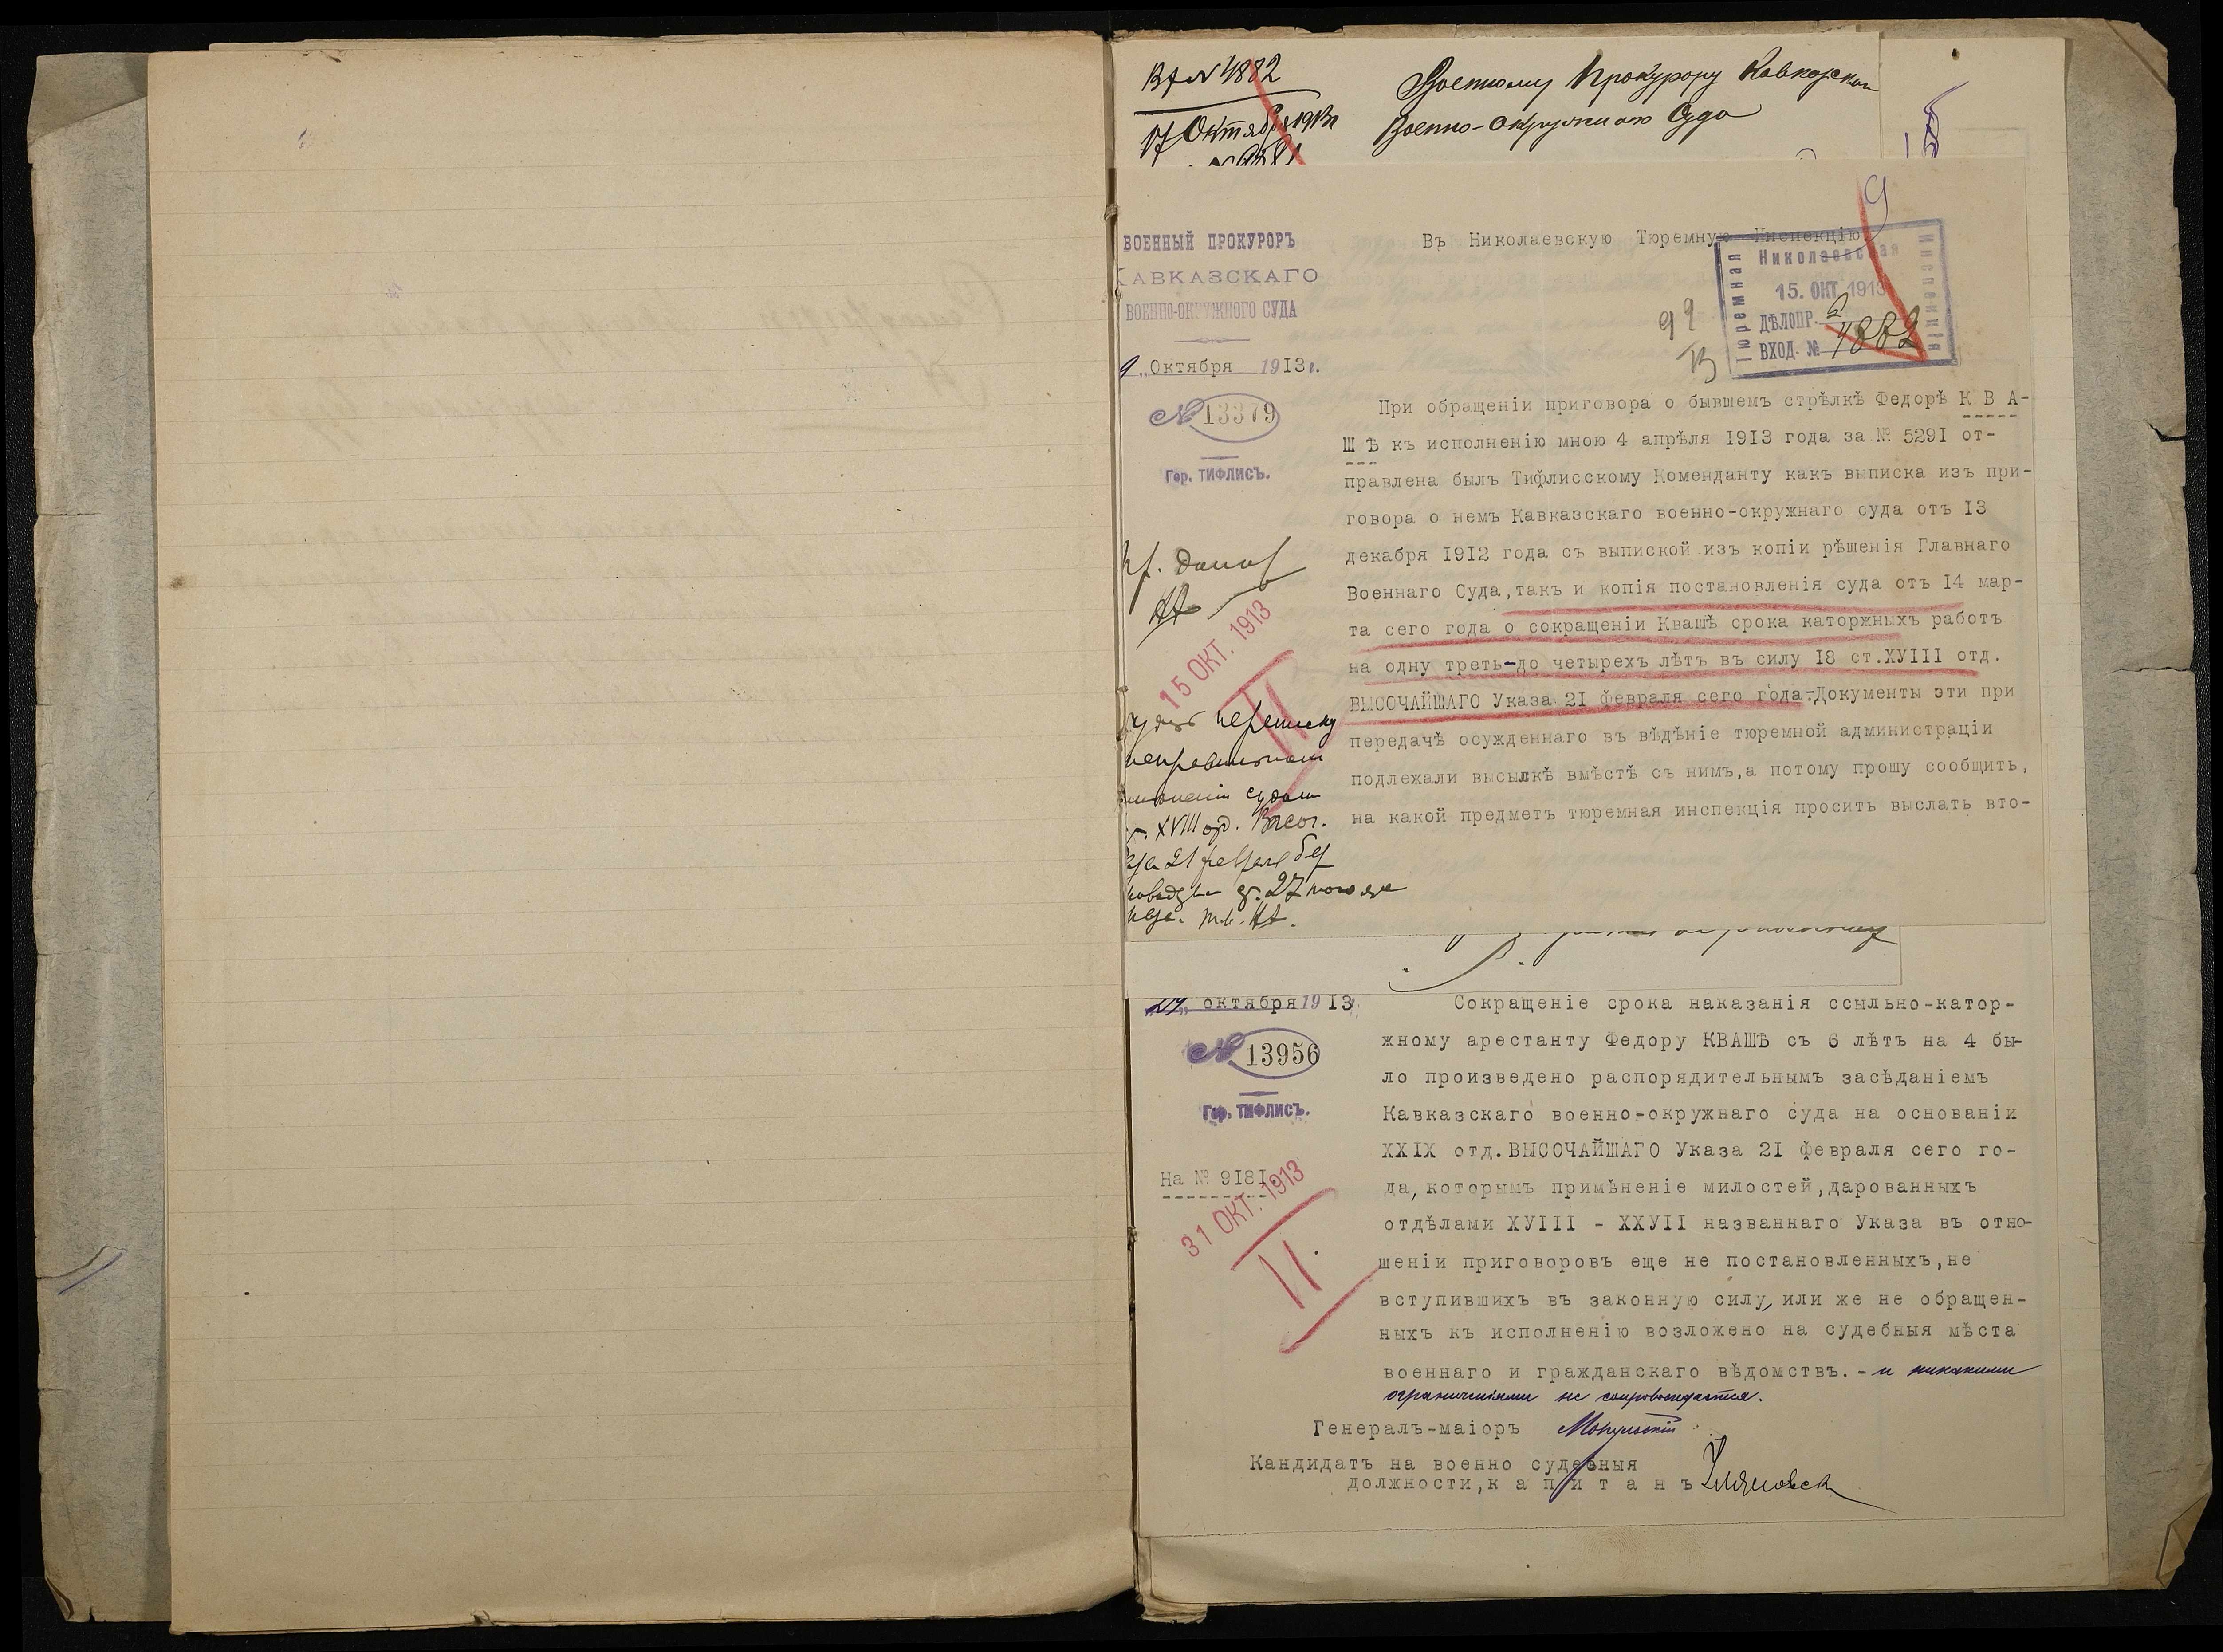 Вх № 4882
17 Октября 1913 г
Военному Прокурору Кавказскаго
Военно-Окружнаго Суда
9
ВОЕННЫЙ ПРОКУРОРЪ
КАВКАЗСКАГО
ВОЕННО-ОКРУЖНОГО СУДА
9 „ Октября 1913 г.
№ 13379
Гор. ТИФЛИСЪ.
Въ Николаевскую Тюремную Инспекцію
Тюремная
Николаевская
Инспекція
15. ОКТ. 1913
ДѢЛОПР. 2
ВХОД. № 4882
При обращеніи приговора о бывшемъ стрѣлкѣ Федорѣ К В А-
Ш Ѣ къ исполненію мною 4 апрѣля 1913 года за № 5291 от-
правлена былъ Тифлисскому Коменданту какъ выписка изъ при-
говора о немъ Кавказскаго военно-окружнаго суда отъ 13
декабря 1912 года съ выпиской изъ копіи рѣшенія Главнаго
Военнаго Суда,такъ и копія постановленія суда отъ 14 мар-
та сего года о сокращеніи Квашѣ срока каторжныхъ работъ
на одну треть-до четырехъ лѣтъ въ силу 18 ст.ХУIII отд.
ВЫСОЧАЙШАГО Указа 21 февраля сего года-.Документы эти при
передачѣ осужденнаго въ вѣдѣніе тюремной администраціи
подлежали высылкѣ вмѣстѣ съ нимъ,а потому прошу сообщить,
на какой предметъ тюремная инспекція проситъ выслать вто-
15 ОКТ. 1913
II
переписку
судом
XVIII отд. Высоч.
21 февраля
27 того же
„29„ октября 1913 г.
№ 13956
Гор. ТИФЛИСЪ.
На № 9181
31 ОКТ. 1913
II.
Сокращеніе срока наказанія ссыльно-катор-
жному арестанту Федору КВАШѢ съ 6 лѣтъ на 4 бы-
ло произведено распорядительнымъ засѣданіемъ
Кавказскаго военно-окружнаго суда на основаніи
XXIX отд.ВЫСОЧАЙШАГО Указа 21 февраля сего го-
да,которымъ примѣненіе милостей,дарованныхъ
отдѣлами ХУIII - ХХУII названнаго Указа въ отно-
шеніи приговоровъ еще не постановленныхъ,не
вступившихъ въ законную силу,или же не обращен-
ныхъ къ исполненію возложено на судебныя мѣста
военнаго и гражданскаго вѣдомствъ.- и никакими
ограниченіями не сопровождается.
Генералъ-маіоръ
Кандидатъ на военно судебныя
должности,к а п и т а н ъ